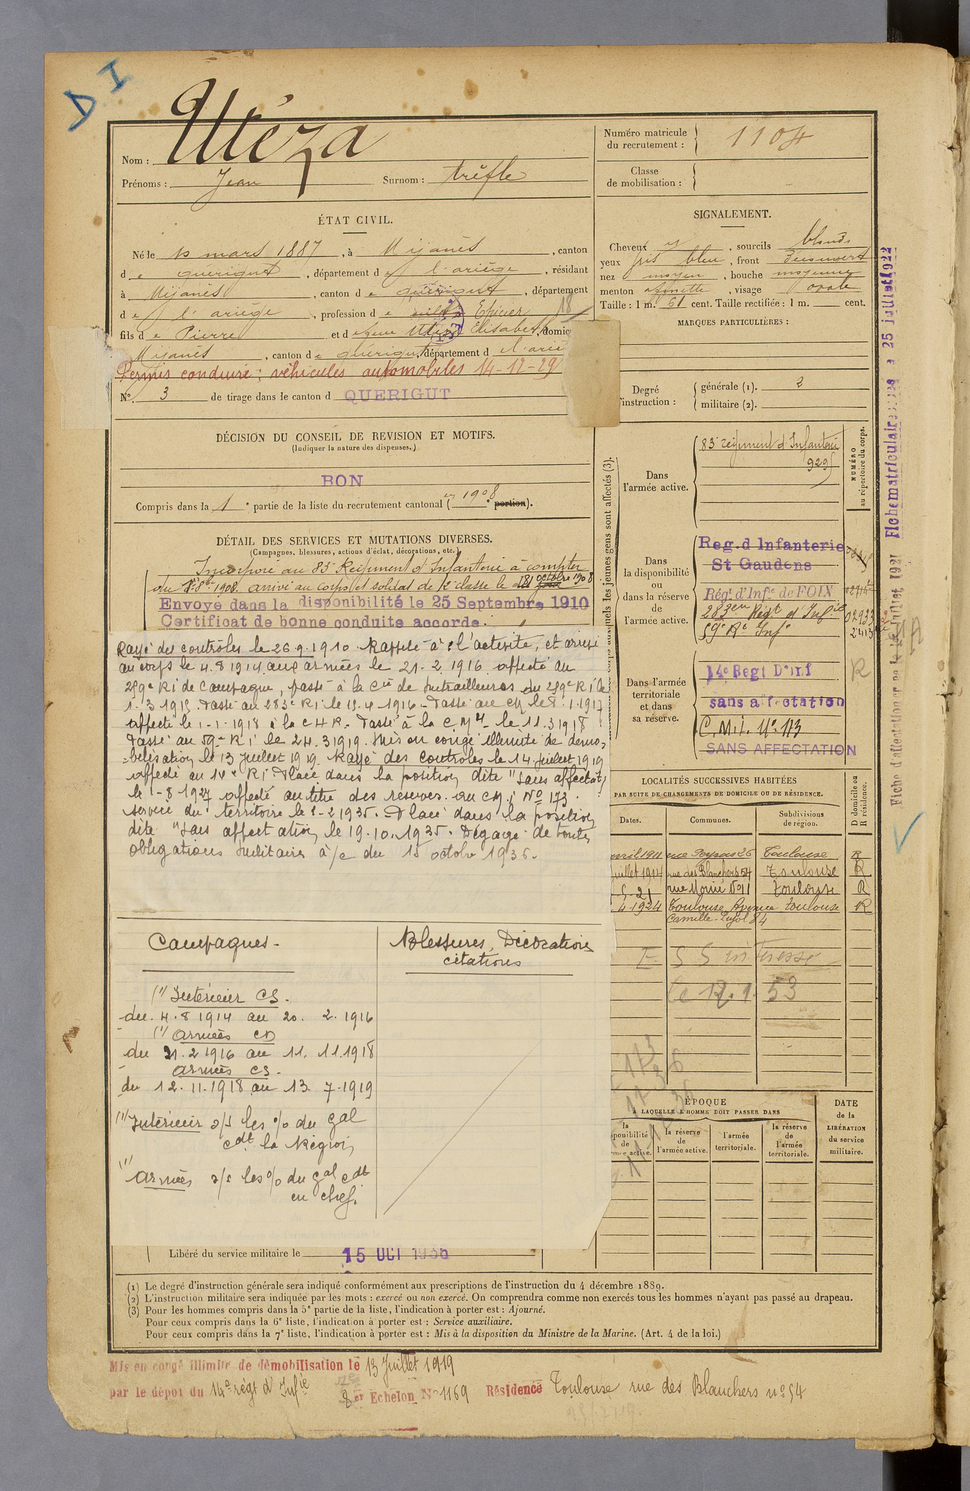 D I
Nom : Utéza
Prénoms : Jean Surnom : trêfle
Numéro matricule du recrutement : 1104
Classe de mobilisation :
ÉTAT CIVIL.
Né le 10 mars 1887, à Mijanès, canton
d e quérigut, département d e l'ariège, résidant
à Mijanès, canton d e quérigut, département
d e l'ariège, profession d e Epicier
fils d e Pierre et d e Utéza Elisabeth domici
Mijanès, canton d e quérigut, département d e l'ariè
Permis conduire : véhicules automobiles 14-12-29
N° 3 de tirage dans le canton d QUERIGUT
SIGNALEMENT.
Cheveux, sourcils blonds
yeux gris bleu, front découvert
nez moyen, bouche moyenne
menton, visage ovale
Taille : 1 m. 61 cent. Taille rectifiée : 1 m. cent.
MARQUES PARTICULIÈRES :
Degré d'instruction : générale (1). 3
militaire (2).
DÉCISION DU CONSEIL DE REVISION ET MOTIFS.
(Indiquer la nature des dispenses.)
BON
Compris dans la 1e partie de la liste du recrutement cantonal (en 1908 portion).
DÉTAIL DES SERVICES ET MUTATIONS DIVERSES.
(Campagnes, blessures, actions d'éclat, décorations, etc.)
Incorporé au 83e Régiment d'Infanterie à compter
du 1908 arrivé au corps et soldat de 2e classe le octobre 1908
Envoyé dans la disponibilité le 25 Septembre 1910
Certificat de bonne conduite accordé.
Rayé des contrôles le 26.9.1910 Rappelé à l'activité, et arrivé
au corps le 4.8.1914 aux armées le 21.2.1916 affecté au
259e RI de Campagne, passé à la Cie de mitrailleuses du 259e RI le
1.3.1916 Passé au 283e RI le 19.4.1916 - Passé au CM le 8.1.1917
affecté le 1-1-1918 à la C.H.R. Passé à la C.M le 11.3.1918
Passé au 59e RI le 24.3.1919. Mis en congé illimité de démo-
bilisation le 13 Juillet 1919. Rayé des contrôles le 14 Juillet 1919
affecté au 14e RI Placé dans la position dite "Sans affectat"
le 1-8-1927 affecté au titre des réserves au CMI No 173.
Service du territoire le 1-2-1935. Placé dans la position
dite "Sans affectation, le 19.10.1935. Dégagé de toutes
obligations militaires à/c du 15 octobre 1936.
Campagnes - Blessures, Décorations
citations
(1) Intérieur CS.
du 4.8.1914 au 20.2.1916
(1) Armées CD
du 21.2.1916 au 11.11.1918
Armées CS.
du 12.11.1918 au 13.7.1919
(1) Intérieur s/s les % du Gal
cdt la Région
(1) Armées s/s les % du gal cdt
en chef.
Libéré du service militaire le 15 OCT 1936
NUMÉRO au répertoire du corps.
Dans l'armée active. 83e régiment d'Infanterie
929
Dans la disponibilité ou dans la réserve de l'armée active.
Reg. d Infanterie
St Gaudens
Régt d'Infie de FOIX
283e Régt d'Infie
59e Rt Infie
Dans l'armée territoriale et dans sa réserve.
14e Regt D'inf
sans affectation
C.M.I. No 173
SANS AFFECTATION
LOCALITÉS SUCCESSIVES HABITÉES
PAR SUITE DE CHANGEMENTS DE DOMICILE OU DE RÉSIDENCE.
Dates. Communes. Subdivisions de région. D domicile ou R résidence.
avril 1911 26 Toulouse R
juillet 1914 rue des Blanchers 54 Toulouse R
21 11 Toulouse R
4.1924 Toulouse Avenue Toulouse R
Camille-Pujol 84
le 12.9.53
ÉPOQUE
À LAQUELLE L'HOMME DOIT PASSER DANS
la disponibilité de l'armée active. la réserve de l'armée active. l'armée territoriale. la réserve de l'armée territoriale.
DATE de la LIBÉRATION du service militaire.
(1) Le degré d'instruction générale sera indiqué conformément aux prescriptions de l'instruction du 4 décembre 1889.
(2) L'instruction militaire sera indiquée par les mots : exercé ou non exercé. On comprendra comme non exercés tous les hommes n'ayant pas passé au drapeau.
(3) Pour les hommes compris dans la 5e partie de la liste, l'indication à porter est : Ajourné.
Pour ceux compris dans la 6e liste, l'indication à porter est : Service auxiliaire.
Pour ceux compris dans la 7e liste, l'indication à porter est : Mis à la disposition du Ministre de la Marine. (Art. 4 de la loi.)
Mis en congé illimité de démobilisation le 13 Juillet 1919
par le dépôt du 14e régt d'Infie Echelon No 1169 Résidence Toulouse rue des Blanchers no 54